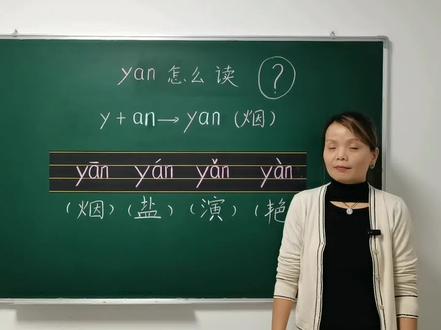 yan 怎么读 ?
y+an→yan (烟)
yān yán yǎn yàn
(烟) (盐) (演) (艳